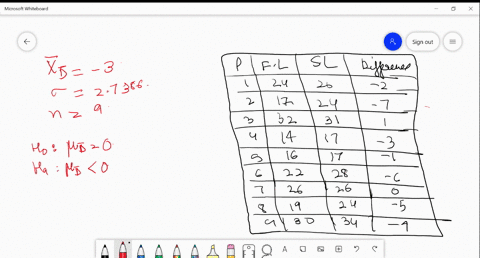 Microsoft Whiteboard
Sign out
X̄D = -3
σ = 2.7386.
n = 9
H₀ : μD = 0
Hₐ : μD < 0
P F.L SL Difference
1 24 26 -2
2 17 24 -7
3 32 31 1
4 14 17 -3
5 16 17 -1
6 22 28 -6
7 26 26 0
8 19 24 -5
9 30 34 -4